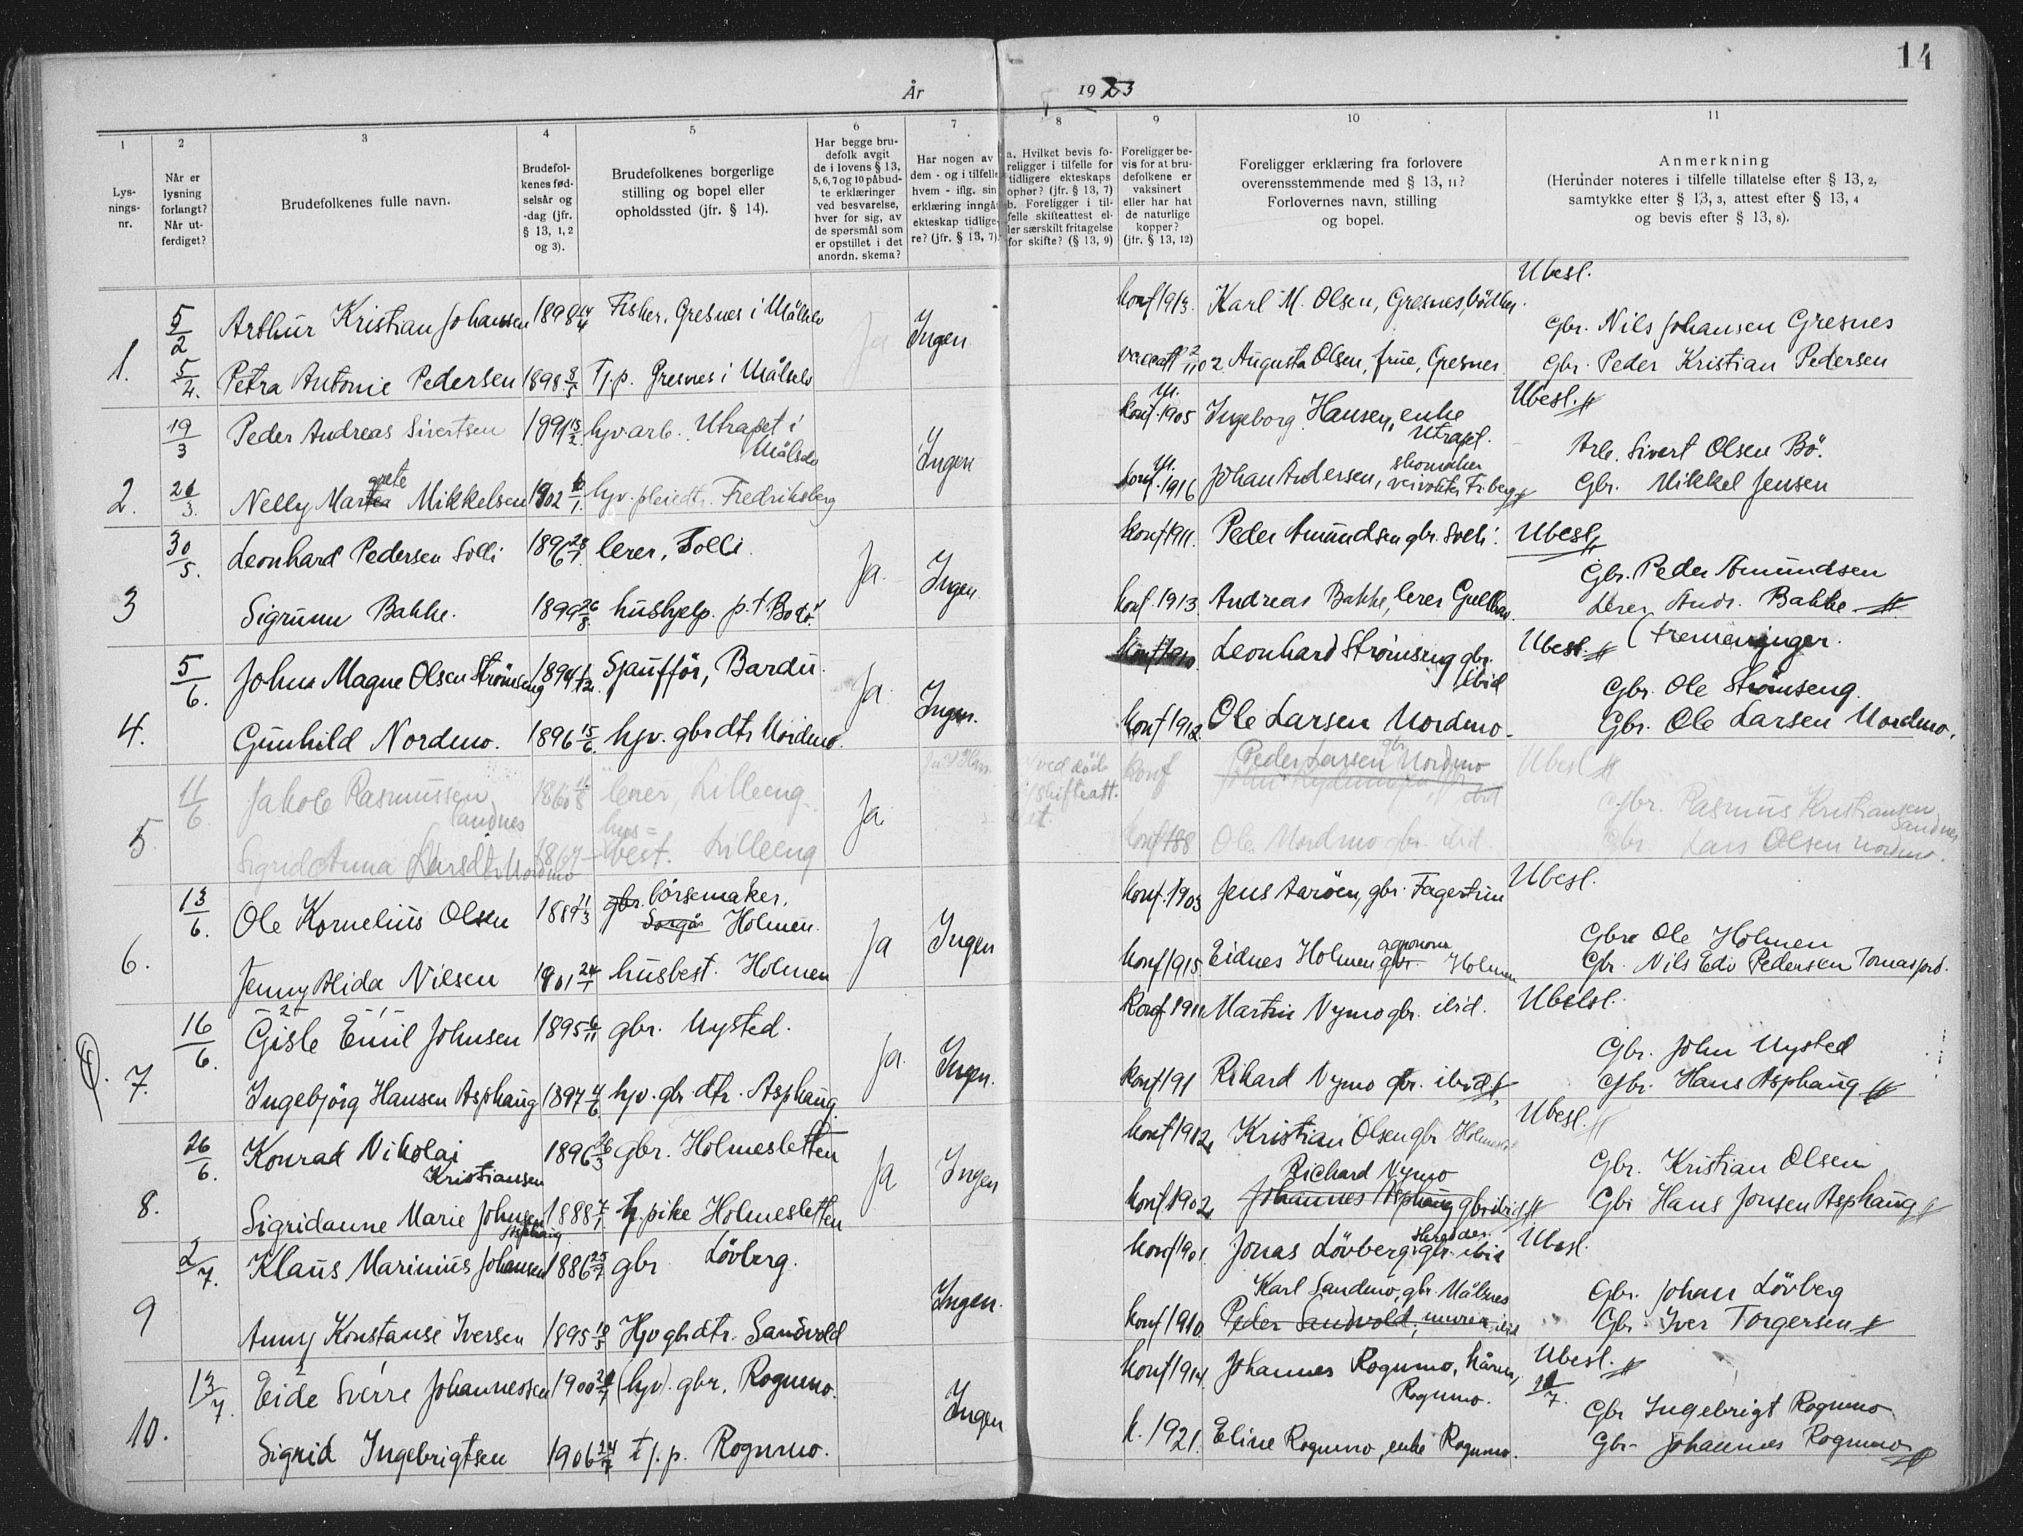 14
År 1923
1 2 3 4 5 6 7 8 9 10 11
Lys-
nings-
nr.
Når er
lysning
forlangt?
Når ut-
ferdiget?
Brudefolkenes fulle navn.
Brudefol-
kenes fød-
selsår og
-dag (jfr.
§ 13, 1, 2
og 3).
Brudefolkenes borgerlige
stilling og bopel eller
opholdssted (jfr. § 14).
Har begge bru-
defolk avgit
de i lovens § 13,
5, 6, 7 og 10 påbud-
te erklæringer
ved besvarelse,
hver for sig, av
de spørsmål som
er opstillet i det
anordn. skema?
Har nogen av
dem - og i tilfelle
hvem - iflg. sin
erklæring inngåt
ekteskap tidlige-
re? (jfr. § 13, 7).
a. Hvilket bevis fo-
religger i tilfelle for
tidligere ekteskaps
ophør? (jfr. § 13, 7)
b. Foreligger i til-
felle skifteattest el-
ler særskilt fritagelse
for skifte? (§ 13, 9)
Foreligger be-
vis for at bru-
defolkene er
vaksinert
eller har hat
de naturlige
kopper?
(jfr. § 13, 12)
Foreligger erklæring fra forlovere
overensstemmende med § 13, 11?
Forlovernes navn, stilling
og bopel.
Anmerkning
(Herunder noteres i tilfelle tillatelse efter § 13, 2,
samtykke efter § 13, 3, attest efter § 13, 4
og bevis efter § 13, 8).
Ubesl.
5/2 Arthur Kristian Johansen 1898 14/4 Fisker, Gresnes i Målselv Ja Ingen konf 1913. Karl M. Olsen, Gresnes, Gbr. Nils Johansen Gresnes
1. 5/2. Petra Antonie Pedersen 1898 Tj.p. Gresnes i Målselv Augusta Olsen, frue, Gresnes Gbr. Peder Kristian Pedersen
Ubesl.
19/3 Peder Andreas Sivertsen hjv arb. Utrapet i Målselv Ingen konf. 1905 Ingeborg Hansen, enke Utrapet. Arb. Sivert Olsen Bö.
2. Nelly Martea grete Mikkelsen 1902 hjv. Fredriksberg konf. 1916 Johan Andersen, skomaker Gbr. Mikkel Jensen
30/5. Leonhard Pedersen Solli 1896 lerer, Solli. Ja. Ingen konf 1911. Peder Amundsen gbr. Solli. Ubesl. Gbr. Peder Amundsen
3 Sigrunn Bakke. 1899 26/8. hushjelp p.t Bodö. konf. 1913. Andreas Bakke, lerer Lerer Andr. Bakke
(tremeninger.
5/6. Johan Magne Olsen Strömseng 1894 1/12. Sjaufför, Bardu. Ja. Ingen. konf 1910 Leonhard Strömseng gbr. ibid Ubesl. Gbr. Ole Strömseng.
4. Gunhild Nordmo. 1896 15/6. hjv. gbrdtr Nordmo. konf 1912. Ole Larsen Nordmo. Gbr. Ole Larsen Nordmo.
11/6 Jakob Rasmussen Sandnes 1860 lerer, Lilleeng. Ja. ved död skifteatt. konf Peder Larsen gbr Nordmo Ubesl Gbr. Rasmus Kristiansen Sandnes
5. Sigrid Anna Larsdtr Nordmo 1867 husbest. Lilleeng konf 188 Ole Nordmo gbr. ibid. Gbr Lars Olsen Nordmo.
13/6. Ole Kornelius Olsen 1889 11/3 gbr. börsemaker, Holmen. Ja Ingen konf. 1903 Jens Aaröen, gbr. Ubesl. Gbr. Ole Holmen
6. Jenny Alida Nilsen 1901 24/1 husbest. Holmen konf 1915. Eidnes Holmen agronom gbr. Holmen Gbr. Nils Edv Pedersen
16/6. Gisle Emil Johnsen 1895 6/11 gbr. Nysted. Ja. Ingen. konf 1910 Martin Nymo gbr. ibid. Ubesl. Gbr. John Nysted
7. Ingebjörg Hansen Asphaug 1897 4/6 hjv. gbr dtr. Asphaug konf 191 Rikard Nymo gbr. ibid. Gbr. Hans Asphaug
26/6. Konrad Nikolai Kristiansen 1896 26/3 gbr. Holmesletten Ja Ingen konf 1912, Kristian Olsen gbr Holmeslet Ubesl. Gbr. Kristian Olsen
8. Sigridanne Marie Johnsen Asphaug 1888 7/1 tj. pike Holmesletten konf 1902, Richard Nymo Johannes Asphaug gbr ibid Gbr Hans Jonsen Asphaug
2/7. Klaus Marinius Johansen 1886 25/7 gbr Lövberg. Ingen. konf 1901. Jonas Lövberg, skredder gbr. ibid Ubesl. Gbr. Johan Lövberg
9 Anny Konstanse Iversen 1895 Hjv gbrdtr. Sandvold konf 1910. Karl Sandmo, gbr. Målsnes Peder Sandvold, murer ibid Gbr. Iver Torgersen
13/7. Eide Sverre Johannessen 1900 (hjv). gbr. Rognmo. Ingen konf 1914. Johannes Rognmo, Rognmo. Ubesl. Gbr Ingebrigt Rognmo
10. Sigrid Ingebrigtsen 1906 24/7 tj. p. Rognmo. k. 1921. Eline Rognmo, enke Rognmo. Gbr. Johannes Rognmo